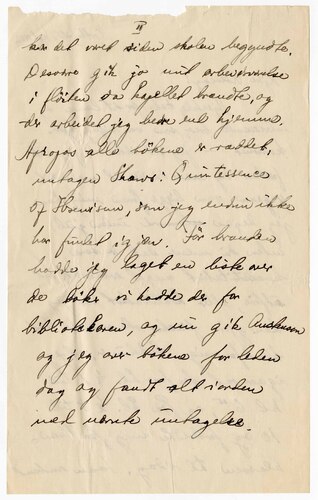 II
har det været siden skolen begyndte.
Desværre gik jo mit arbeidsværelse
i fløiten da kapellet brandte, og
der arbeidet jeg bare end hjemme.
Apropos alle bøkene er reddet,
untagen Shaws: Quintessence
of Ibsenism, som jeg endnu ikke
har fundet igjen. Før branden
hadde jeg laget en liste over
de bøker vi hadde der for
bibliotekaren, og nu gik Anderson
og jeg over bøkene for leden
dag og fandt alt iorden
med nævnte untagelse.